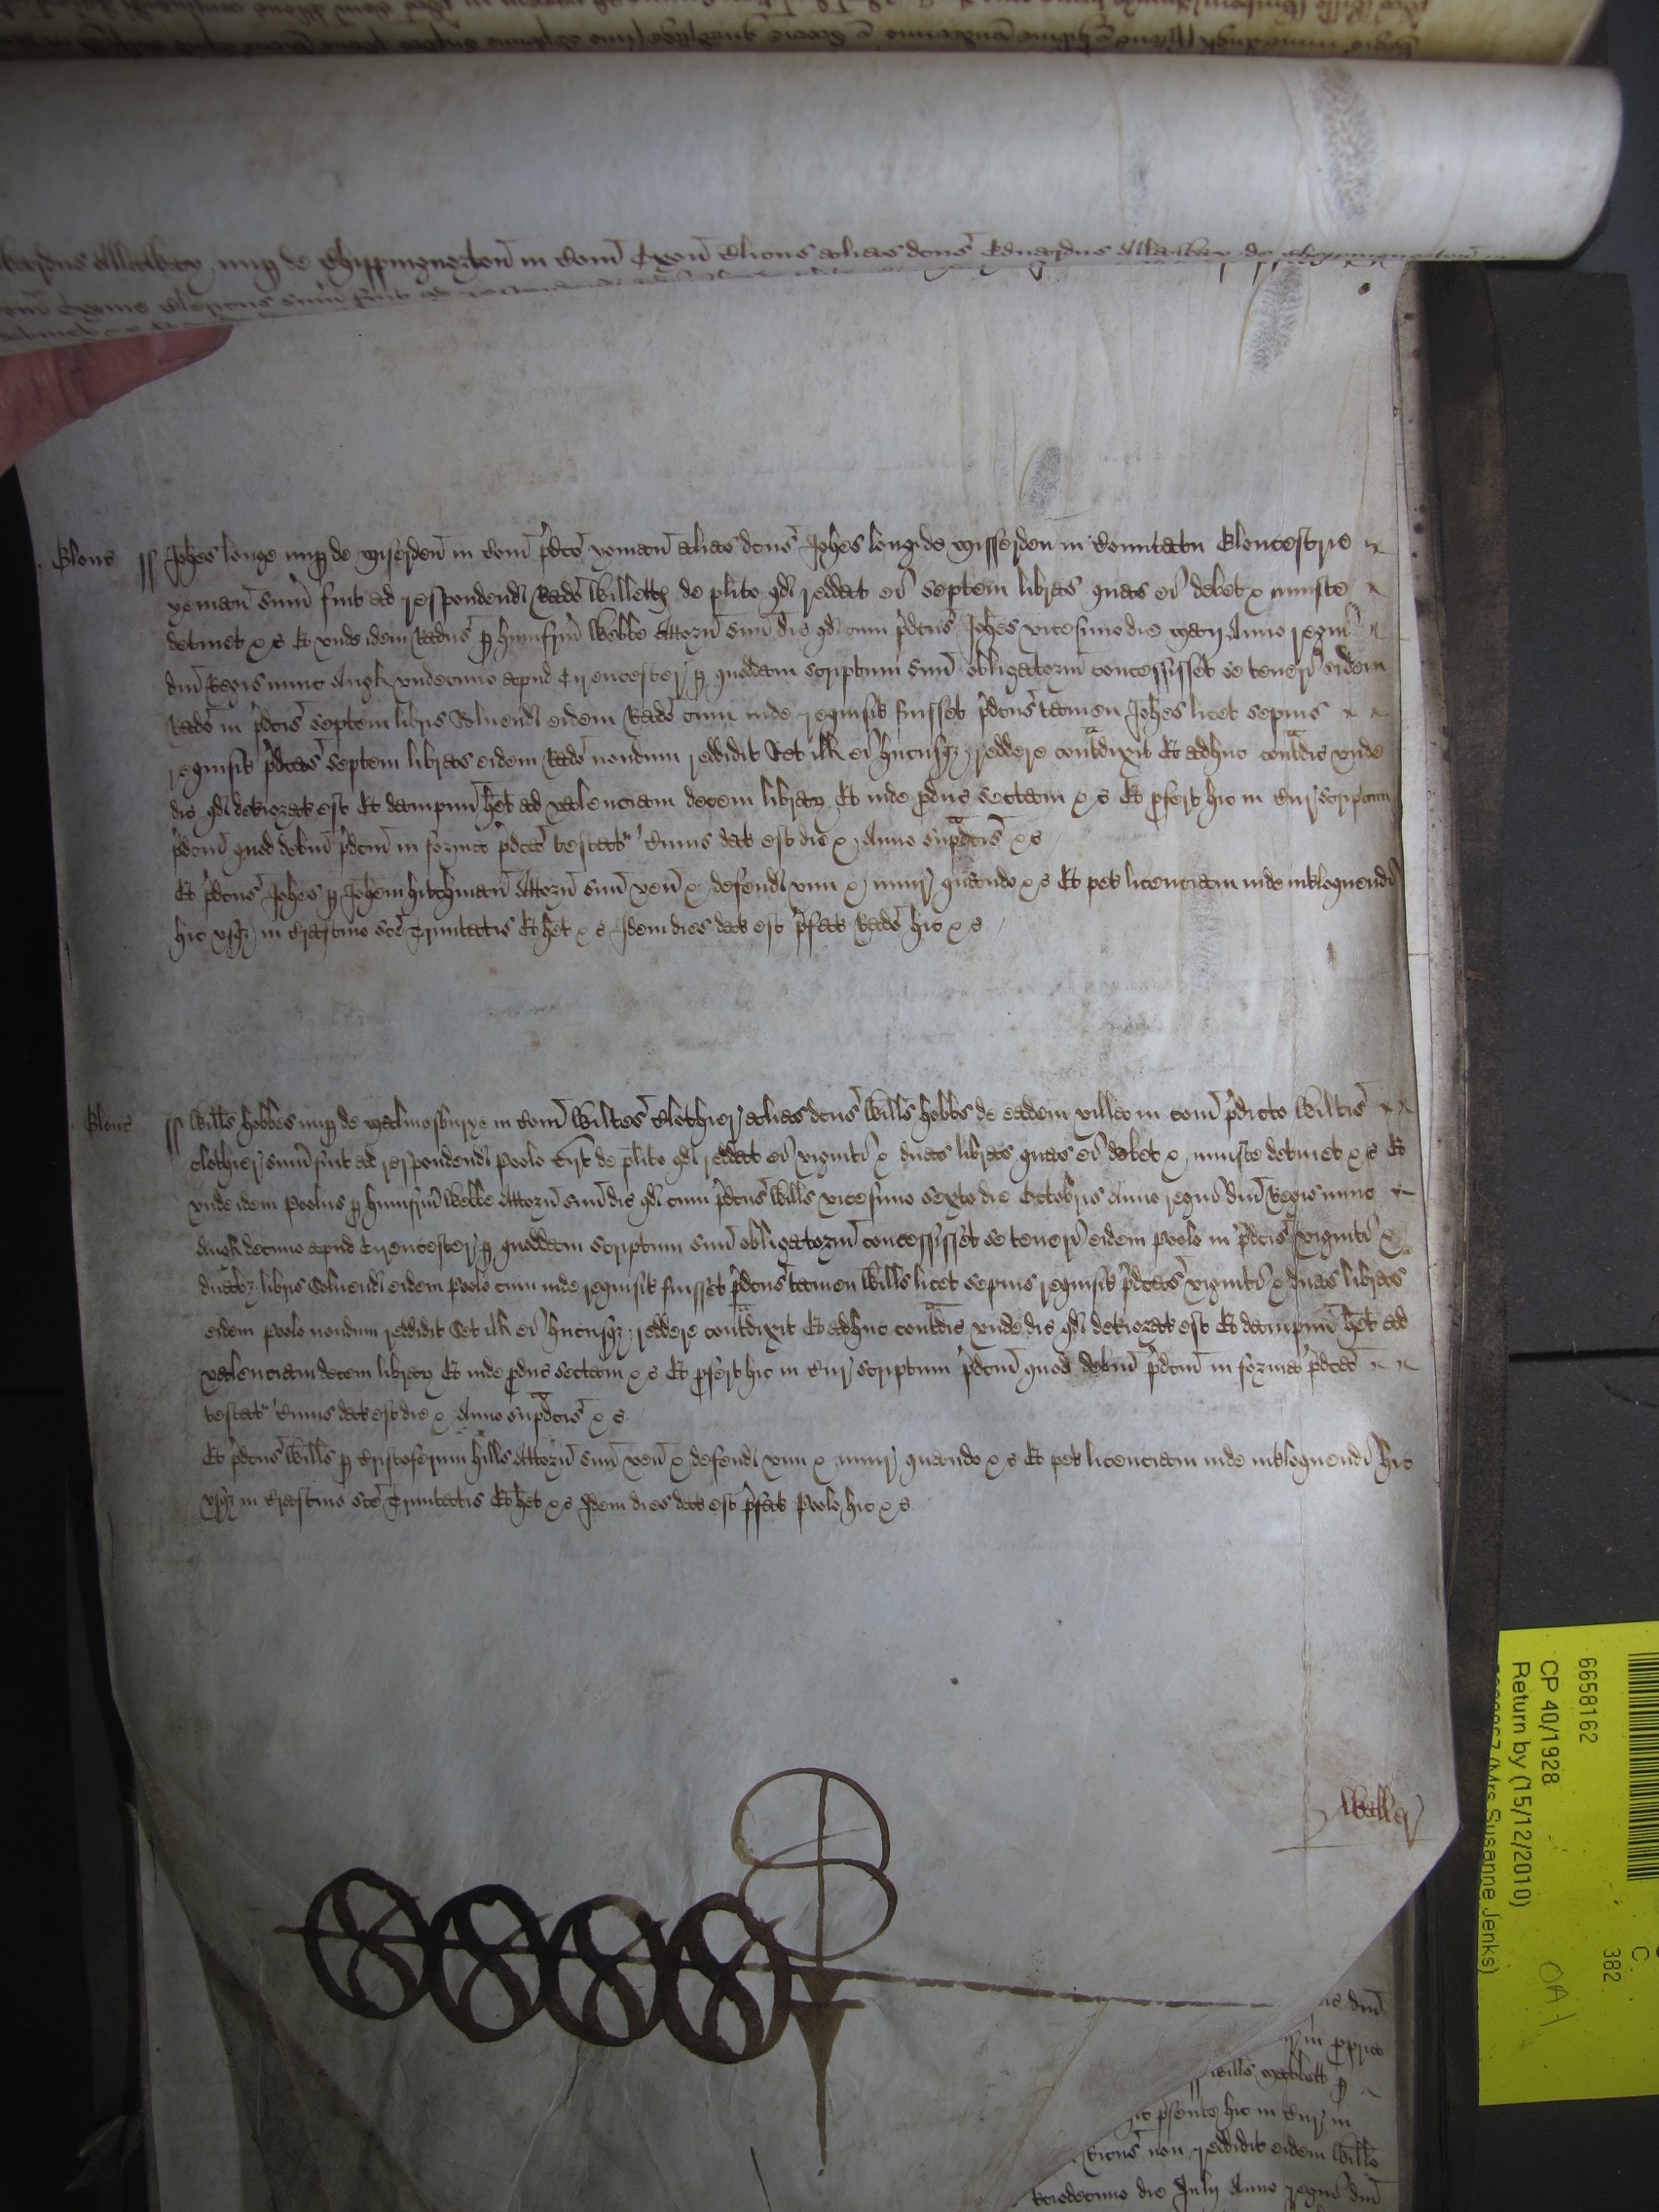 Glouc ss Johes longe nup de Miserden in Com p̄dco yoman alias dcus Johes longe de Misserden in Comitatu Gloucestrie
yoman sum fuit ad respondend Rado Willett de plito qd reddat ei septem libras quas ei debet & iniuste
detinet &c Et unde idem Radus p Humfrm Webbe Attorn suu dic qd cum p̄dcus Johes vicesimo die Maij Anno regni
dni Regis nunc Angl undecimo apud Cirencester p quoddam scriptum suu obligatoriu concessisset se teneri eidem
Rado in p̄dcis septem libris Solvend eidem Rado cum inde requisit fuisset p̄dcus tamen Johes licet sepius
requisit p̄dcas septem libras eidem Rado nondum reddidit Set ill ei hucusq reddere contradixit Et adhuc contradic unde
dic qd deteriorat est Et dampnu het ad valenciam decem librar Et inde pduc sectam &c Et pfert hic in Cur scriptum
p̄dcm quod debitu p̄dcm in forma p̄dca testat Cuius dat est die & Anno sup̄dcis &c
Et p̄dcus Johes p Johem Hitchman Attorn suu ven & defend vim & iniur quando &c Et pet licenciam inde interloquendi
hic usq in Crastino sce Trinitatis Et het &c Idem dies dat est p̄fat Rado hic &c
Glouc ss Wills Hobbes nup de Malmesburye in Com Wiltes Clothier alias dcus Wills Hobbs de eadem villa in com p̄dicto Wiltis
clothier sum fuit ad respondend Poolo de plito qd reddat ei viginti & duas libras quas ei debet & iniuste detinet &c Et
unde idem Poolus p Humfrm Webbe Attorn suu dic qd cum p̄dcus Wills vicesimo sexto die Octobris Anno regni dni Regis nunc
Angl decimo apud Cirencester p quoddam scriptum suu obligatoriu concessisset se teneri eidem Poolo in p̄dcis viginti &
duabz libris Solvend eidem Poolo cum inde requisit fuisset p̄dcus tamen Wills licet sepius requisit p̄dcas viginti & duas libras
eidem Poolo nondum reddidit Set ill ei hucusq reddere contradixit Et adhuc contradic unde dic qd deteriorat est Et dampnu het ad
valenciam decem librar Et inde pduc sectam &c Et pfert hic in Cur scriptum p̄dcm quod debitu p̄dcm in forma p̄dca
testat Cuius dat est die & Anno sup̄dcis &c
Et p̄dcus Wills p Cristoferum Hills Attorn suu ven & defend vim & iniur quando &c Et pet licenciam inde interloquendi hic
usq in Crastino sce Trinitatis Et het &c Idem dies dat est p̄fat Poolo hic &c
Waller
dni
in propria
Wills p
psente hic in Cur in
non reddidit eidem Willo
die Julij Anno regni dni
6658162
CP 40/1928
Return by (15/12/2010)
(Mrs Susanne Jenks)
C.
382